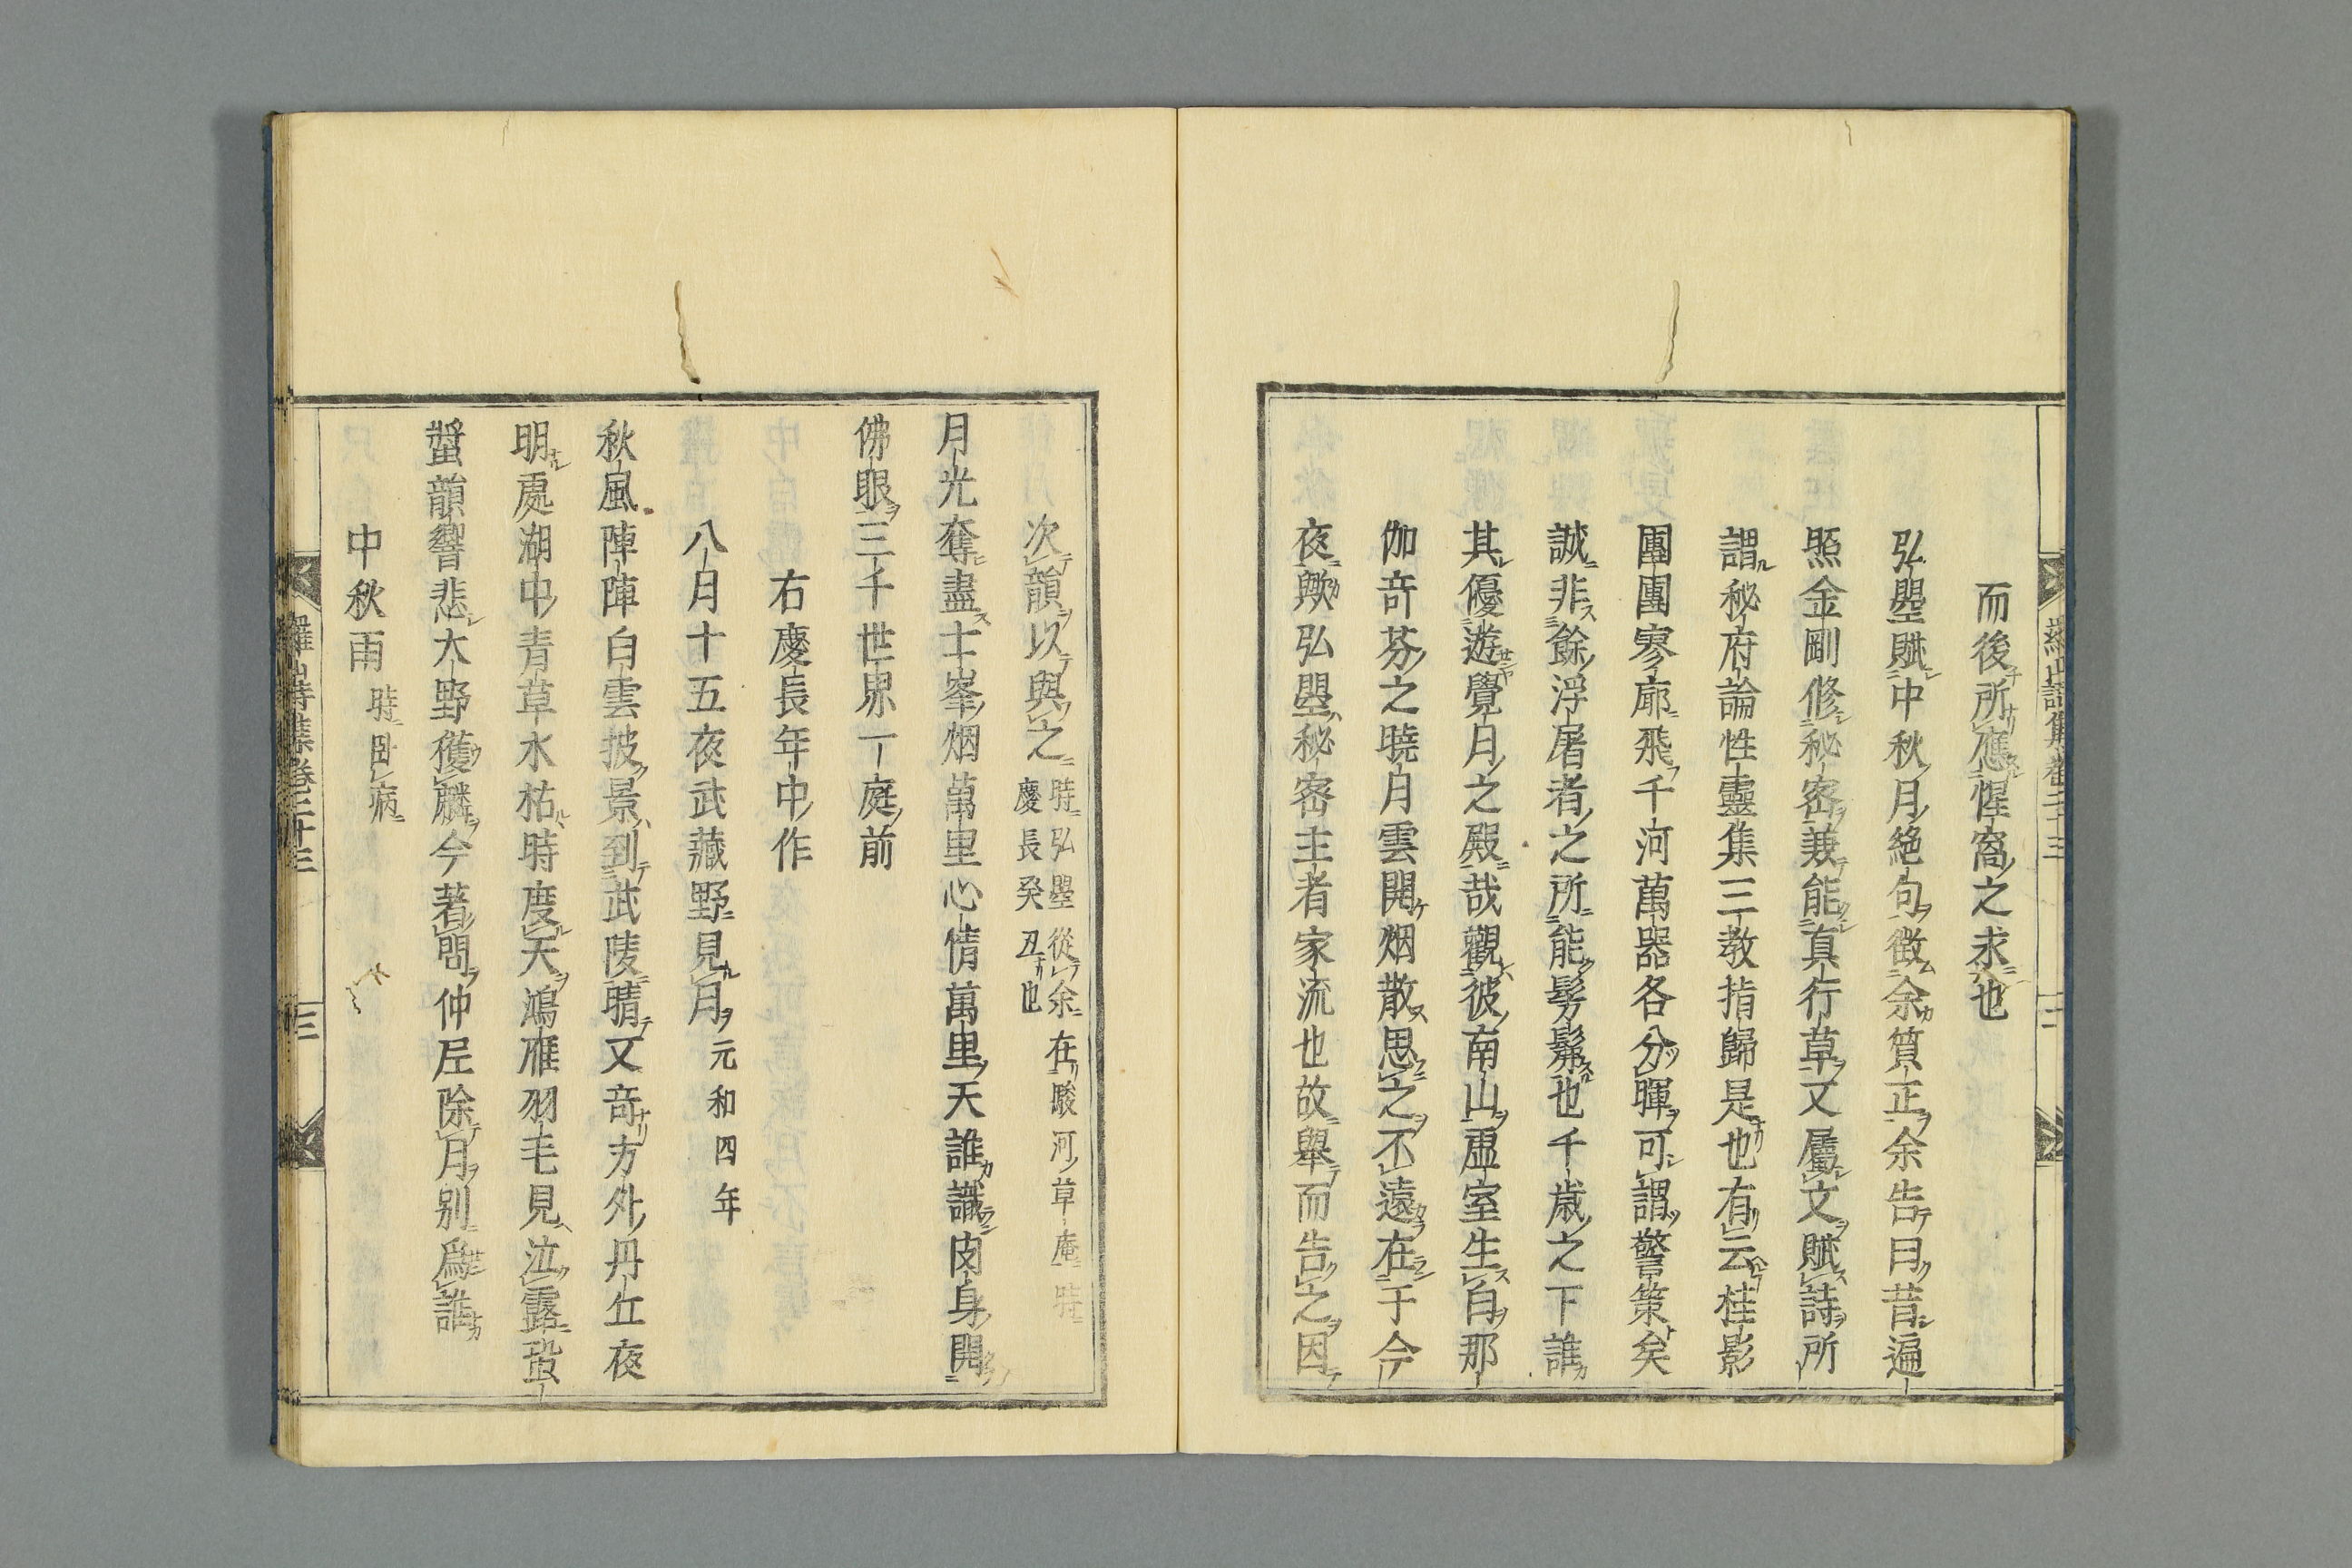 而後所應惺窩之求也
弘曌賦中秋月絶句徴余質正余告曰昔遍
照金剛修秘密兼能真行草又屬文賦詩所
謂秘府論性靈集三教指歸是也有云桂影
團團寥廓飛千河萬器各分暉可謂警策矣
誠非餘浮屠者之所能髣髴也千歳之下誰
其優遊覺月之殿哉觀彼南山虚室生白那
伽奇芬之曉月雲開烟散思之不遠在于今
夜歟弘曌秘密主者家流也故舉而告之因
次韻以與之 時弘曌從余在駿河草庵時
慶長癸丑也
月光奪盡士峯烟萬里心情萬里天誰識肉身開
佛眼三千世界一庭前
右慶長年中作
八月十五夜武藏野見月 元和四年
秋風陣陣白雲披景到武陵晴又奇方外丹丘夜
明處湖中青草水枯時度天鴻雁羽毛見泣露蛩
螿韻響悲大野獲麟今著問仲尼除月別爲誰
中秋雨 時臥病
羅山詩集卷三十三
三